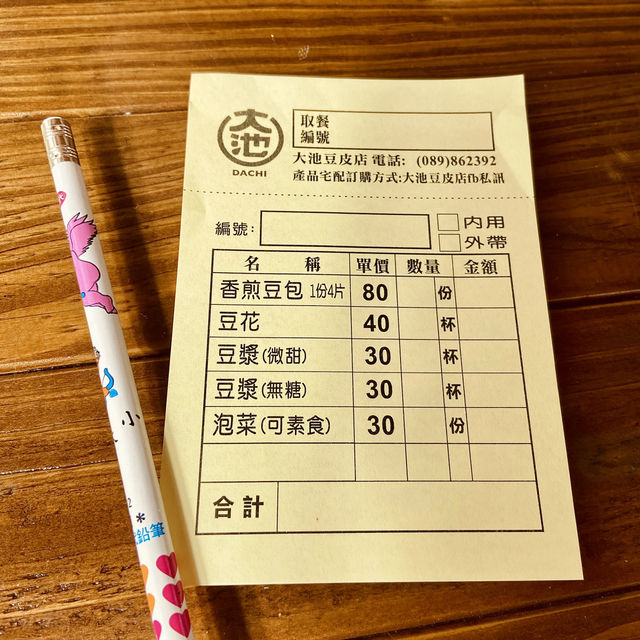 大池
DACHI
取餐
編號
大池豆皮店 電話: (089)862392
產品宅配訂購方式:大池豆皮店fb私訊
編號:
內用
外帶
名 稱 單價 數量 金額
香煎豆包 1份4片 80 份
豆花 40 杯
豆漿(微甜) 30 杯
豆漿(無糖) 30 杯
泡菜(可素食) 30 份
合計
小
2
*
鉛筆